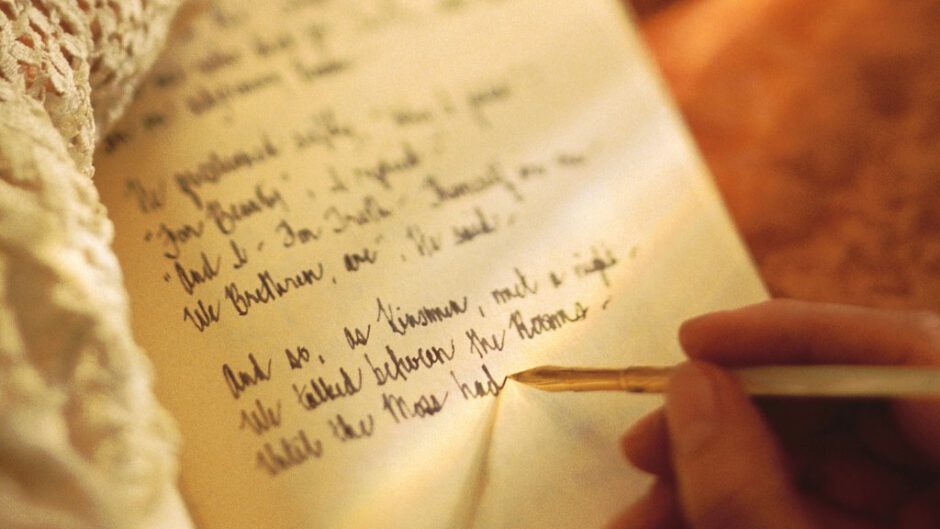 He questioned softly, "Why I
"For Beauty", I replied -
"And I - For Truth - Themself
We Brethren, are", He said -
And so, as Kinsmen, met a night -
We talked between the Rooms -
Until the Moss had